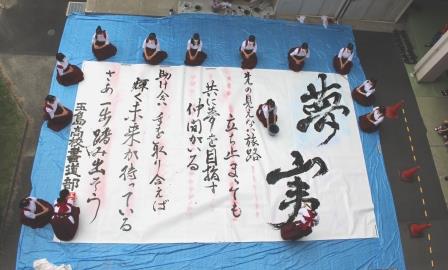 夢実
先の見えない旅路
立ち止まっても
共に夢を目指す
仲間がいる
助け合い手を取り合えば
輝く未来が待っている
さあ一歩踏み出そう
玉島高校書道部